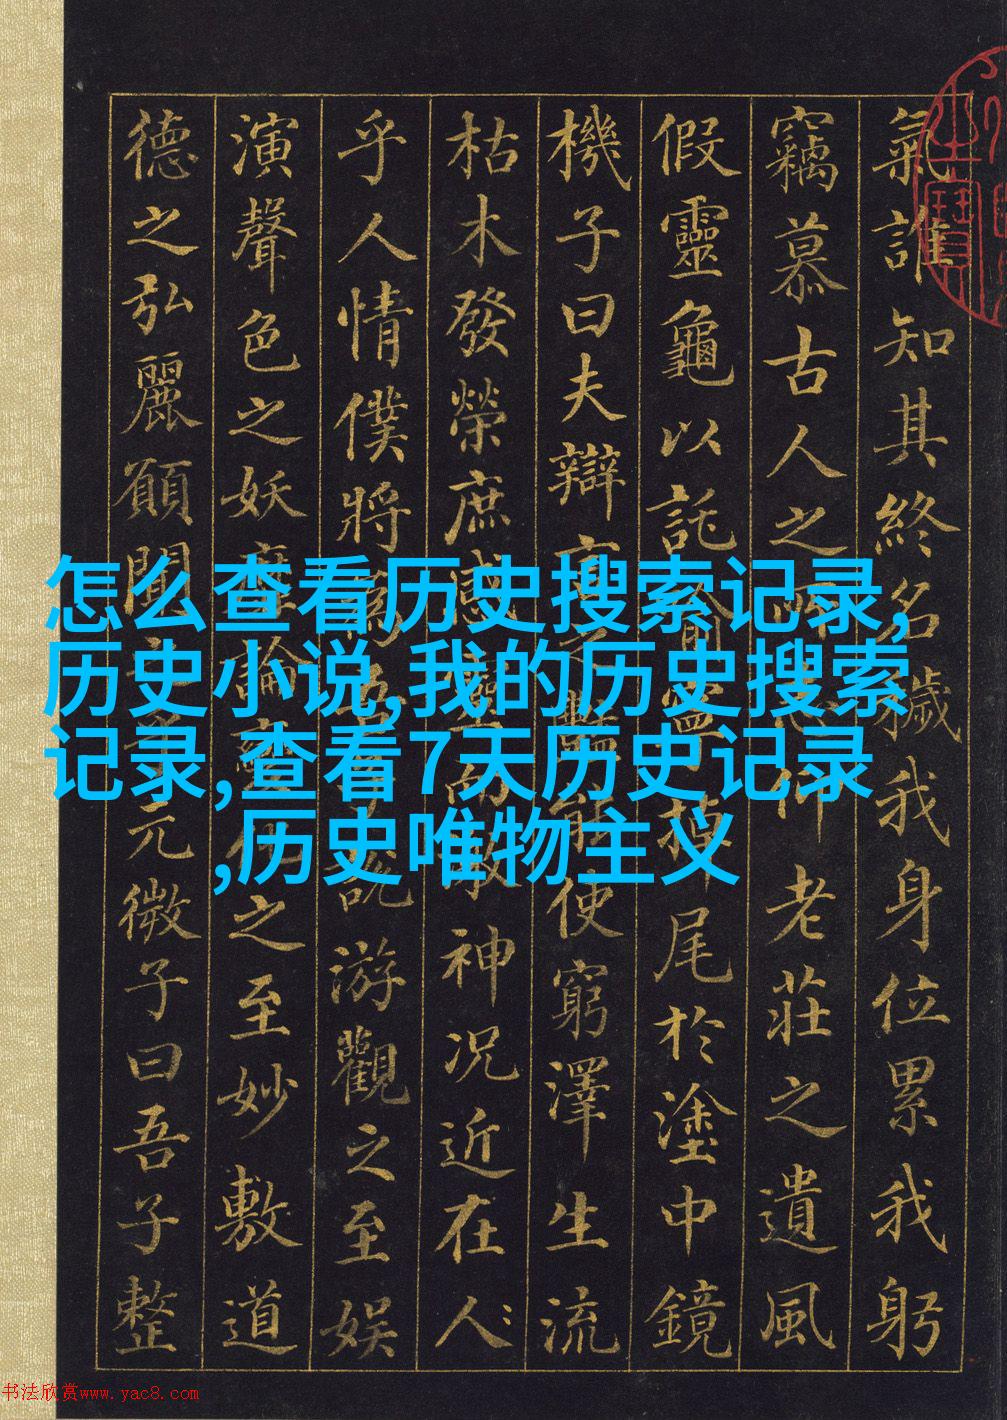 怎么查看历史搜索记录,
历史小说,我的历史搜索
记录,查看7天历史记录
,历史唯物主义
氣誰知其終名穢我身位累我躬
竊慕古人之所志仰老莊之遺風
假靈龜以託喻寧掉尾於塗中鏡
機子曰夫辯言之豔能使窮澤生流
枯木發榮庶感靈而激神況近在人
乎人情僕將為吾子說游觀之至娛
演聲色之妖靡論變化之至妙敷道
德之弘麗願聞之乎元微子曰吾子整
书法欣赏www.yac8.com